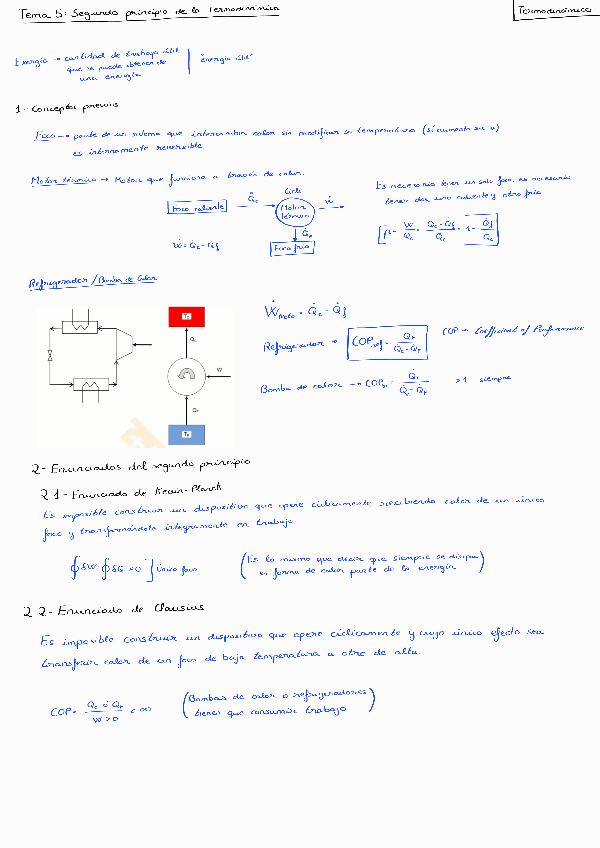 Tema 5: Segundo principio de la Termodinámica
Termodinámica
Exergía → cantidad de trabajo útil
que se puede obtener de
una energía
"energía útil"
1- Conceptos previos
Foco → parte de un sistema que intercambia calor sin modificar su temperatura (si aumenta su u)
es internamente reversible
Motor térmico → Motor que funciona a través de calor.
Ciclo
Foco caliente
Q̇c
Motor
térmico
Ẇ
Q̇F
Foco frío
Ẇ = Q̇c - Q̇f
Es necesario tener un solo foco, es necesario
tener dos, uno caliente y otro frío
η = Ẇ/Q̇c = (Q̇c - Q̇f)/Q̇c = 1 - Q̇f/Q̇c
Refrigerador / Bomba de Calor
TC
QC
W
QF
TF
ẆNeto = Q̇c - Q̇f
Refrigerador → COPref = QF/(Q̇c - Q̇F)
COP → Coefficient of Performance
Bomba de calor → COPBC = Q̇c/(Q̇c - Q̇F) >1 siempre
2- Enunciados del segundo principio
2.1- Enunciado de Kelvin-Planck
Es imposible construir un dispositivo que opere cíclicamente recibiendo calor de un único
foco y transformándolo íntegramente en trabajo
∮δW ∮δQ ≤0 ] único foco
(Es lo mismo que decir que siempre se disipa
en forma de calor parte de la energía)
2.2- Enunciado de Clausius
Es imposible construir un dispositivo que opere cíclicamente y cuyo único efecto sea
transferir calor de un foco de baja temperatura a otro de alta.
COP = (Qc ó QF)/(W>0) < ∞
(Bombas de calor o refrigeradores
tienen que consumir trabajo)